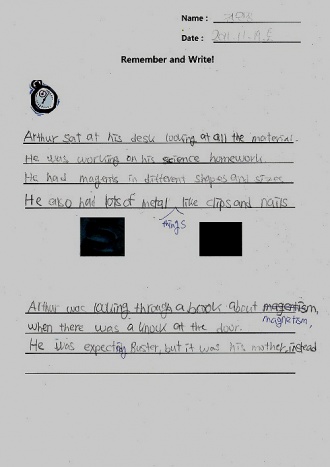 Name :
Date : 2011. 11.
Remember and Write!
Arthur sat at his desk looking at all the material.
He was working on his science homework.
He had magents in different shapes and sizes
He also had lots of metal like clips and nails
things
Arthur was looking through a book about magertism,
magnetism,
when there was a knock at the door.
He was expecting Buster, but it was his mother instead